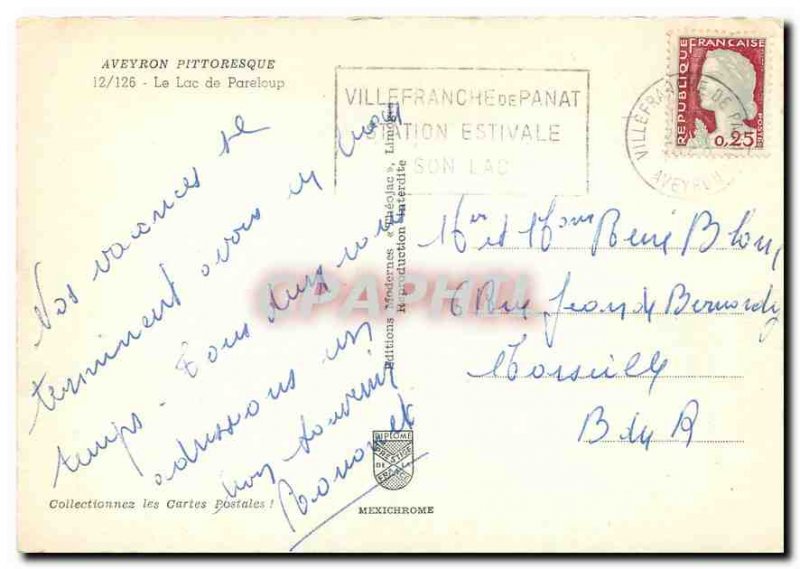 AVEYRON PITTORESQUE
12/126 - Le Lac de Pareloup
VILLEFRANCHE DE PANAT
STATION ESTIVALE
SON LAC
REPUBLIQUE FRANÇAISE
0,25
POSTES
VILLEFRANCHE DE PANAT
AVEYRON
Nos vacances se
terminent avons eu beau
temps - Tous deux vous
adressons un
bon souvenir
Mr et Mme René Blanc
Rue Jean de Bernardy
Marseille
B du R
Editions Modernes « Théojac », Limoges
Reproduction Interdite
CPAPHIL
DIPLOME
PRESTIGE
DE LA
FRANCE
Collectionnez les Cartes Postales !
MEXICHROME